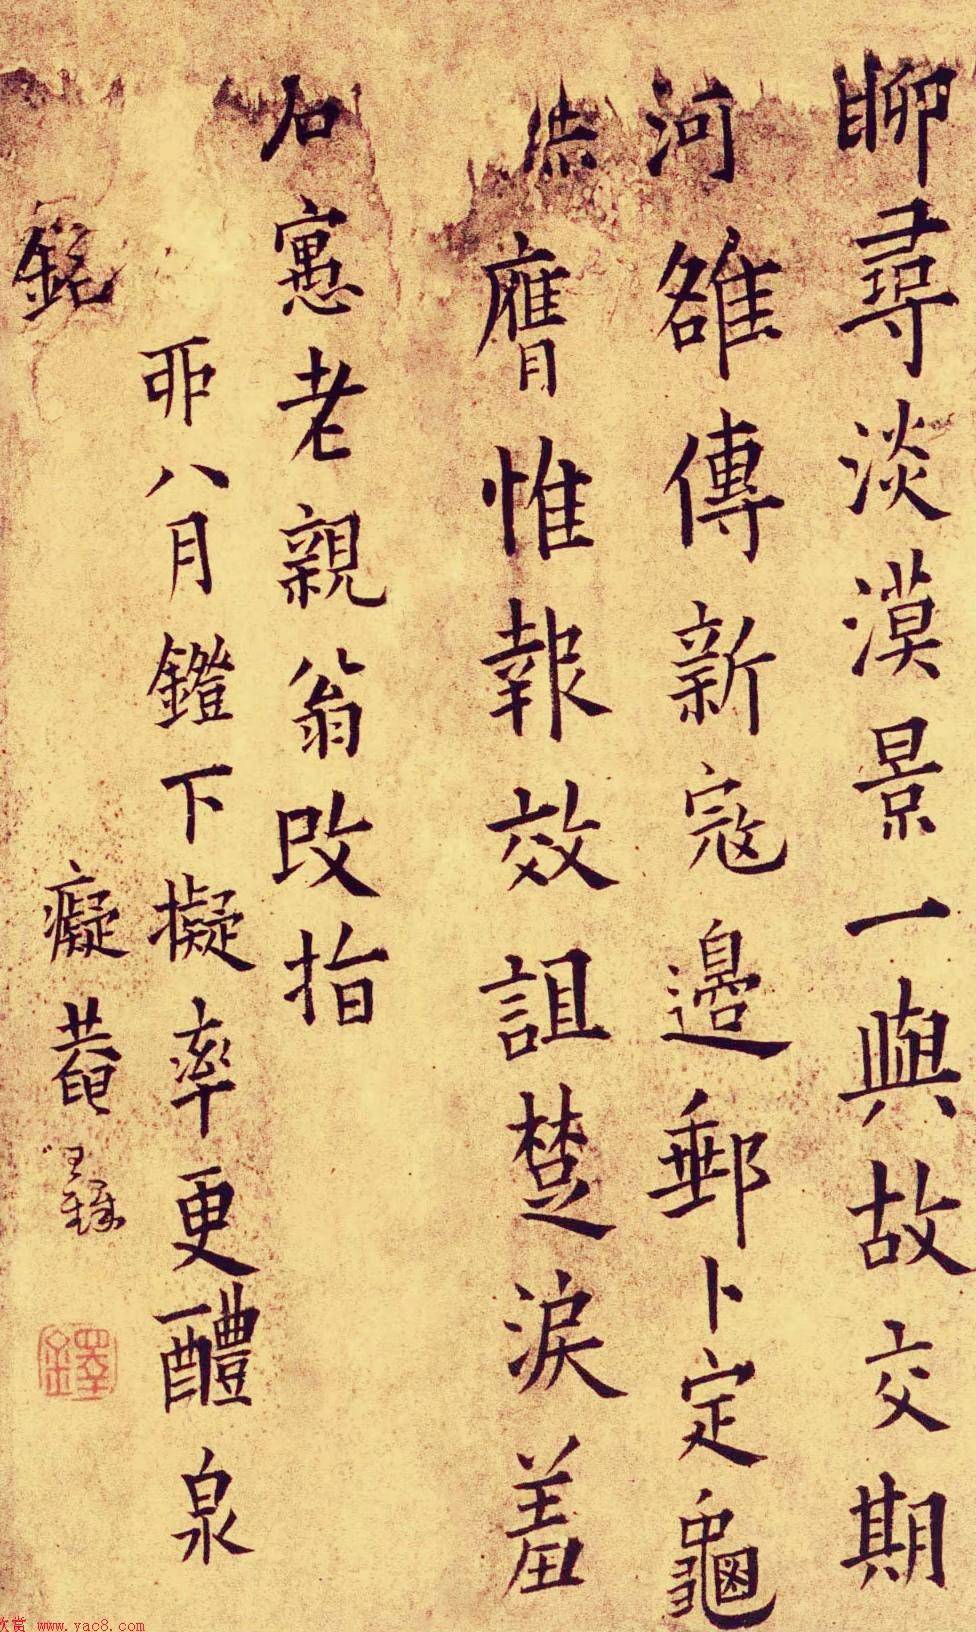 聊尋淡漠景一與故交期
河雒傳新寇邊郵卜定龜
膺惟報效詛楚淚羞
石寓老親翁政指
丣八月鐙下擬率更醴泉
銘
癡菴
鐸
欣赏 www.yac8.com